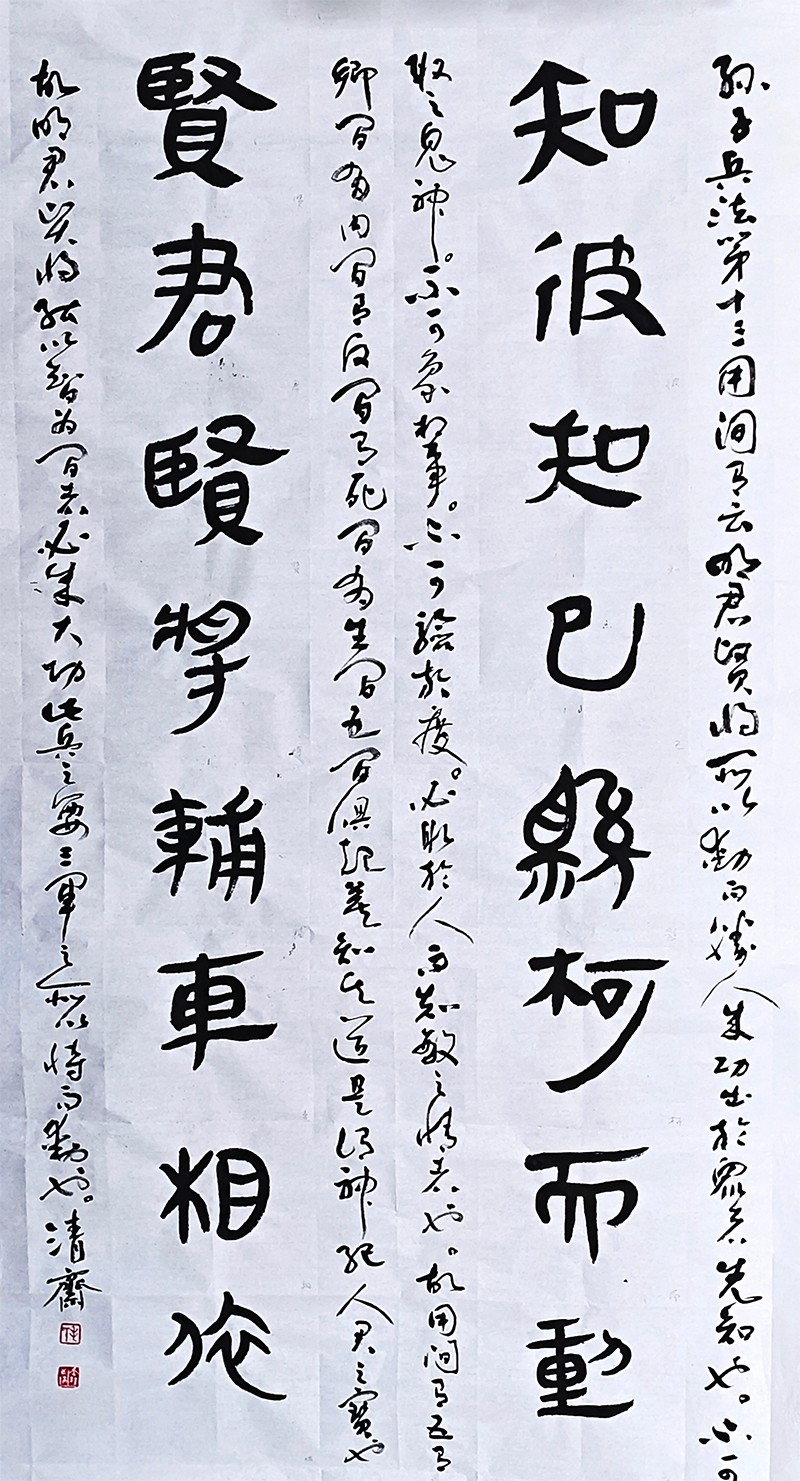 孫子兵法第十三用间有云明君賢将所以動而勝人成功出於眾者先知也。不可
知彼知己縣柯而動
取之鬼神。不可象於事。不可验於度。必取於人而知敵之情者也。故用间有五有
鄉间有内间有反间有死间有生间五间俱起莫知其道是谓神纪人君之寶也
賢君賢将輔車相依
故明君賢将能以智为间者必成大功此兵之要三軍之所恃而動也。清齋